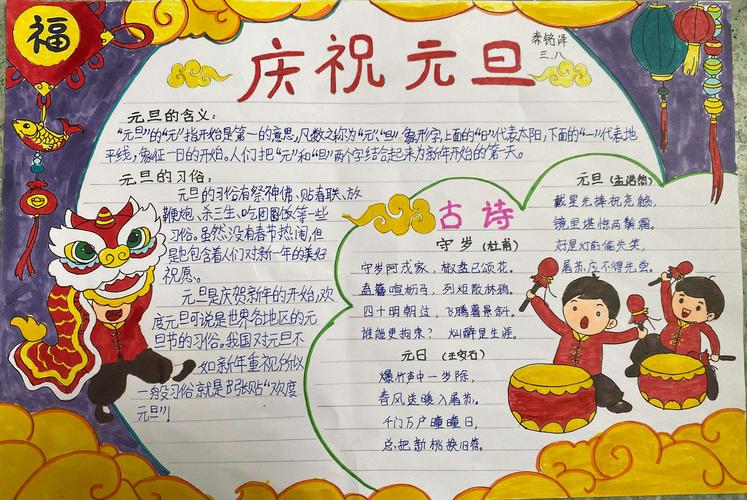 福
庆祝元旦
秦铭泽
三.八
元旦的含义:
"元旦"的"元"指开始是第一的意思,凡数之始称为"元","旦"象形字上面的"日"代表太阳,下面的"一"代表地
平线,象征一日的开始。人们把"元"和"旦"两个字结合起来为新年开始的第一天。
元旦的习俗:
元旦的习俗有祭神佛、贴春联、放
鞭炮、杀三生、吃团圆饭等一些
习俗。虽然没有春节热闹,但
是也包含着人们对新一年的美好
祝愿。
元旦是庆贺新年的开始,欢
度元旦可说是世界各地区的元
旦节的习俗。我国对元旦不
如新年重视所以
一般习俗就是贴"欢度
元旦"!
古诗
守岁(杜甫)
守岁阿戎家,椒盘已颂花。
盍簪喧枥马,列炬散林鸦。
四十明朝过,飞腾暮景斜。
谁能更拘束?烂醉是生涯。
元日(王安石)
爆竹声中一岁除,
春风送暖入屠苏。
千门万户曈曈日,
总把新桃换旧符。
元旦(孟浩然)
戴星先捧祝尧觞,
镜里堪惊两鬓霜。
好是灯前偷失笑,
屠苏应不得先尝。